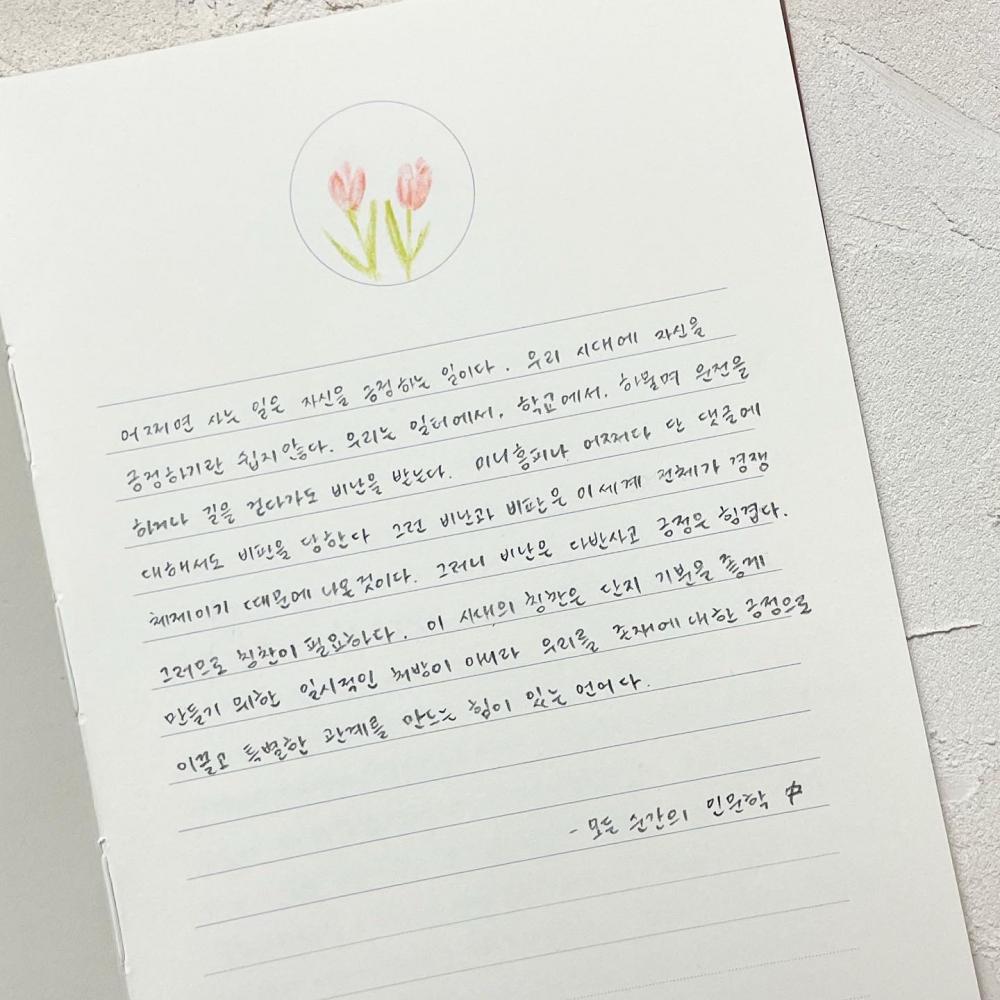 어쩌면 사는 일은 자신을 긍정하는 일이다. 우리 시대에 자신을
긍정하기란 쉽지 않다. 우리는 일터에서, 학교에서, 하물며 운전을
하거나 길을 걷다가도 비난을 받는다. 미니홈피나 어쩌다 단 댓글에
대해서도 비판을 당한다 그런 비난과 비판은 이 세계 전체가 경쟁
체제이기 때문에 나온 것이다. 그러니 비난은 다반사고 긍정은 힘겹다.
그러므로 칭찬이 필요하다. 이 시대의 칭찬은 단지 기분을 좋게
만들기 위한 일시적인 처방이 아니라 우리를 존재에 대한 긍정으로
이끌고 특별한 관계를 만드는 힘이 있는 언어다.
- 모든 순간의 인문학 中